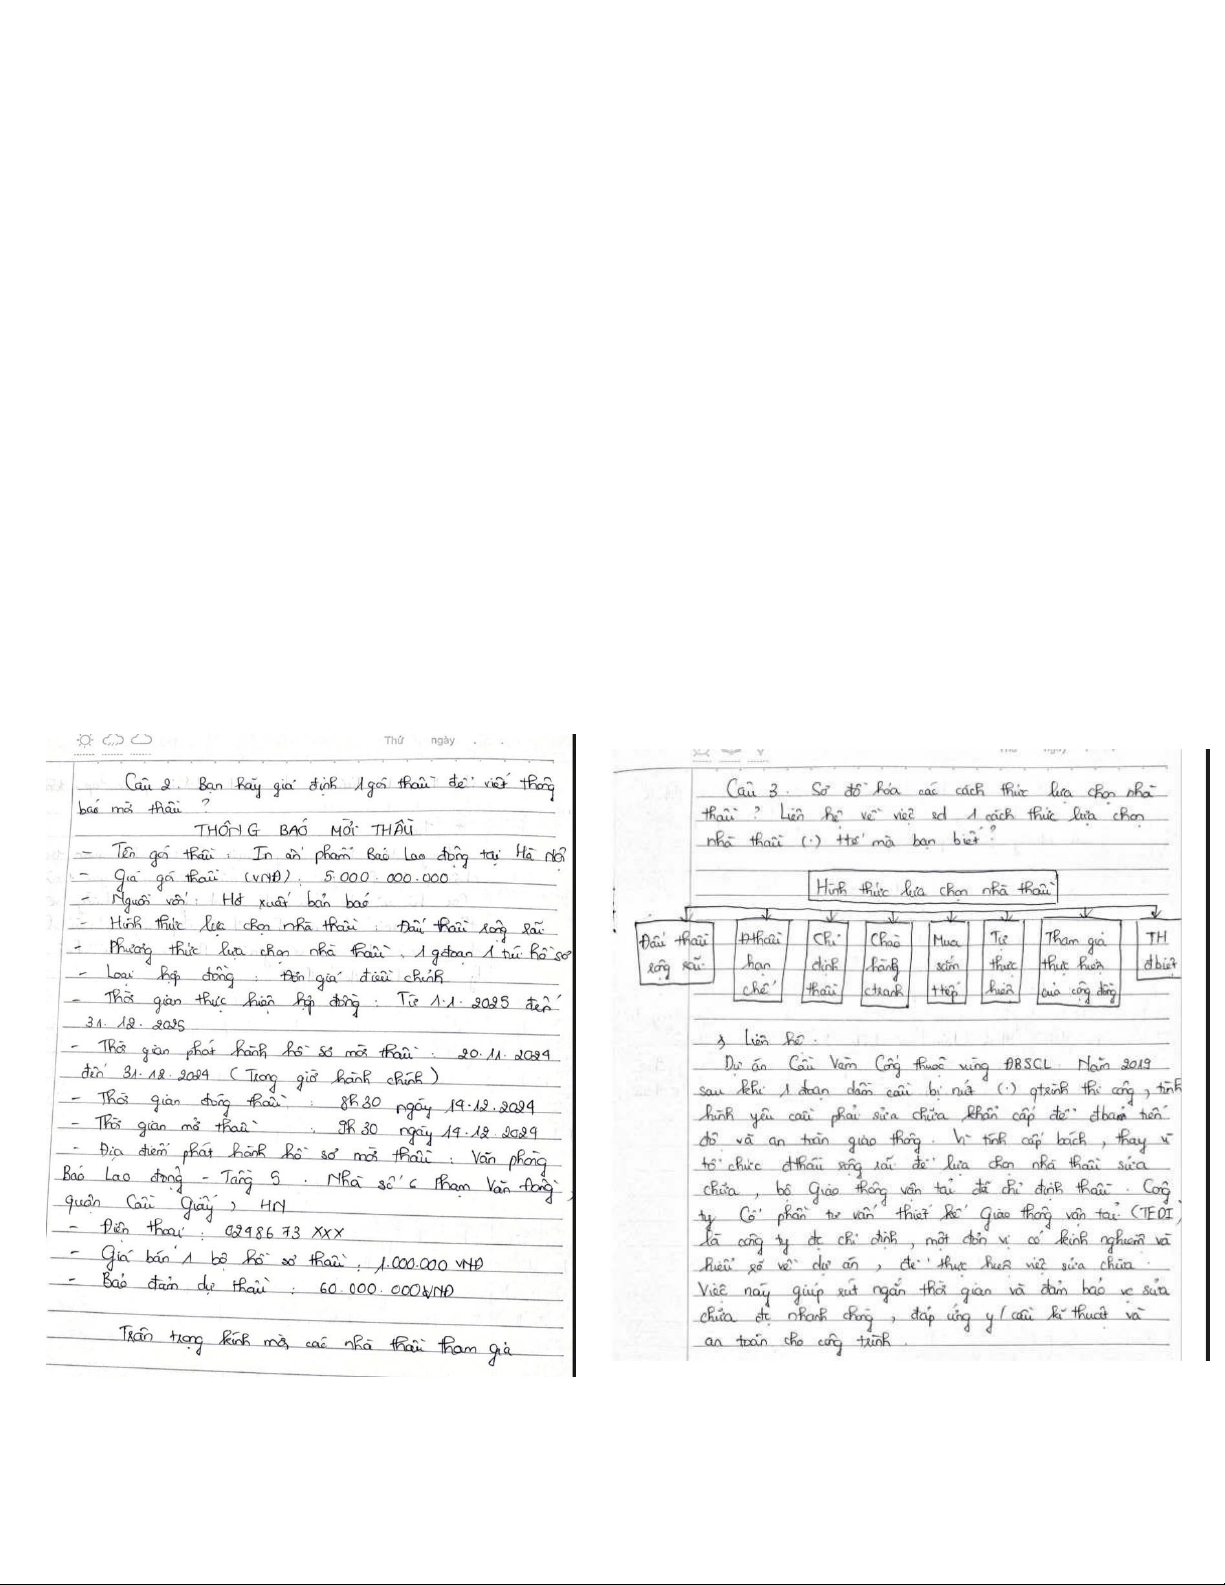 Thứ ngày
Câu 2. Bạn hãy giả định 1 gói thầu để viết thông
báo mời thầu ?
THÔNG BÁO MỜI THẦU
- Tên gói thầu : In ấn phẩm Báo Lao động tại Hà Nội
- Giá gói thầu (VNĐ) : 5.000.000.000
- Nguồn vốn : HĐ xuất bản báo
- Hình thức lựa chọn nhà thầu : Đấu thầu rộng rãi
- Phương thức lựa chọn nhà thầu . 1 gđoạn 1 túi hồ sơ
- Loại hợp đồng : Đơn giá điều chỉnh
- Thời gian thực hiện hợp đồng : Từ 1.1.2025 đến
31.12.2025
- Thời gian phát hành hồ sơ mời thầu : 20.11.2024
đến 31.12.2024 (Trong giờ hành chính)
- Thời gian đóng thầu : 8h30 ngày 14.12.2024
- Thời gian mở thầu : 9h30 ngày 14.12.2024
- Địa điểm phát hành hồ sơ mời thầu : Văn phòng
Báo Lao động - Tầng 5 . Nhà số 6 Phạm Văn Đồng ,
quận Cầu Giấy , HN
- Điện thoại : 0298673 XXX
- Giá bán 1 bộ hồ sơ thầu : 1.000.000 VNĐ
- Bảo đảm dự thầu : 60.000.000 VNĐ
Trân trọng kính mời các nhà thầu tham gia
Thứ ngày
Câu 3 . Sơ đồ hóa các cách thức lựa chọn nhà
thầu ? Liên hệ về việc sd 1 cách thức lựa chọn
nhà thầu (.) ttế mà bạn biết ?
Hình thức lựa chọn nhà thầu
Đấu thầu
rộng rãi
Đthầu
hạn
chế
Chỉ
định
thầu
Chào
hàng
ctranh
Mua
sắm
ttiếp
Tự
thực
hiện
Tham gia
thực hiện
của cộng đồng
TH
đbiệt
Liên hệ .
Dự án Cầu Vàm Cống thuộc vùng ĐBSCL . Năm 2019
sau khi 1 đoạn dầm cầu bị nứt (.) qtrình thi công , tình
hình yêu cầu phải sửa chữa khẩn cấp để đbảm tiến
độ và an toàn giao thông . Vì tính cấp bách , thay vì
tổ chức đthầu rộng rãi để lựa chọn nhà thầu sửa
chữa , bộ Giao thông vận tải đã chỉ định thầu . Công
ty Cổ phần tư vấn thiết kế Giao thông vận tải (TEDI)
là công ty đc chỉ định , một đơn vị có kinh nghiệm và
hiểu rõ về dự án , để thực hiện việc sửa chữa .
Việc này giúp rút ngắn thời gian và đảm bảo vc sửa
chữa đc nhanh chóng , đáp ứng y/cầu kĩ thuật và
an toàn cho công trình .